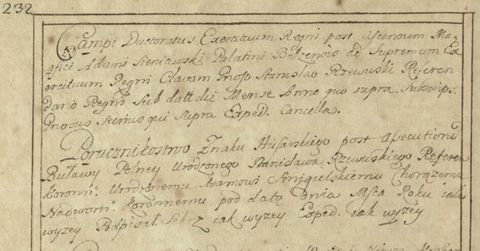 232
Campi Ductoratus Exercituum Regni post ascensum Ma
gfici Adami Sieniawski Palatini Belzensis ad Supremam Ex
ercituum Regni Clavam Gnoso Stanislao Rzewuski Referen
dario Regni sub datt die Mense Anno quo supra. Subscrips.
Gnosus qui Supra Exped. Cancella.
Porucznikostwo Znaku Husarskiego post
Buławy Polney Urodzonego Stanisława Rzewuskiego Referen
Koronn: Urodzonemu Adamowi Smigielskiemu Chorążemu
Nadworn: Koronnemu pod datą Dnia Msca Roku iako
wyzey Podpisał iak wyzey Exped. iak wyzey